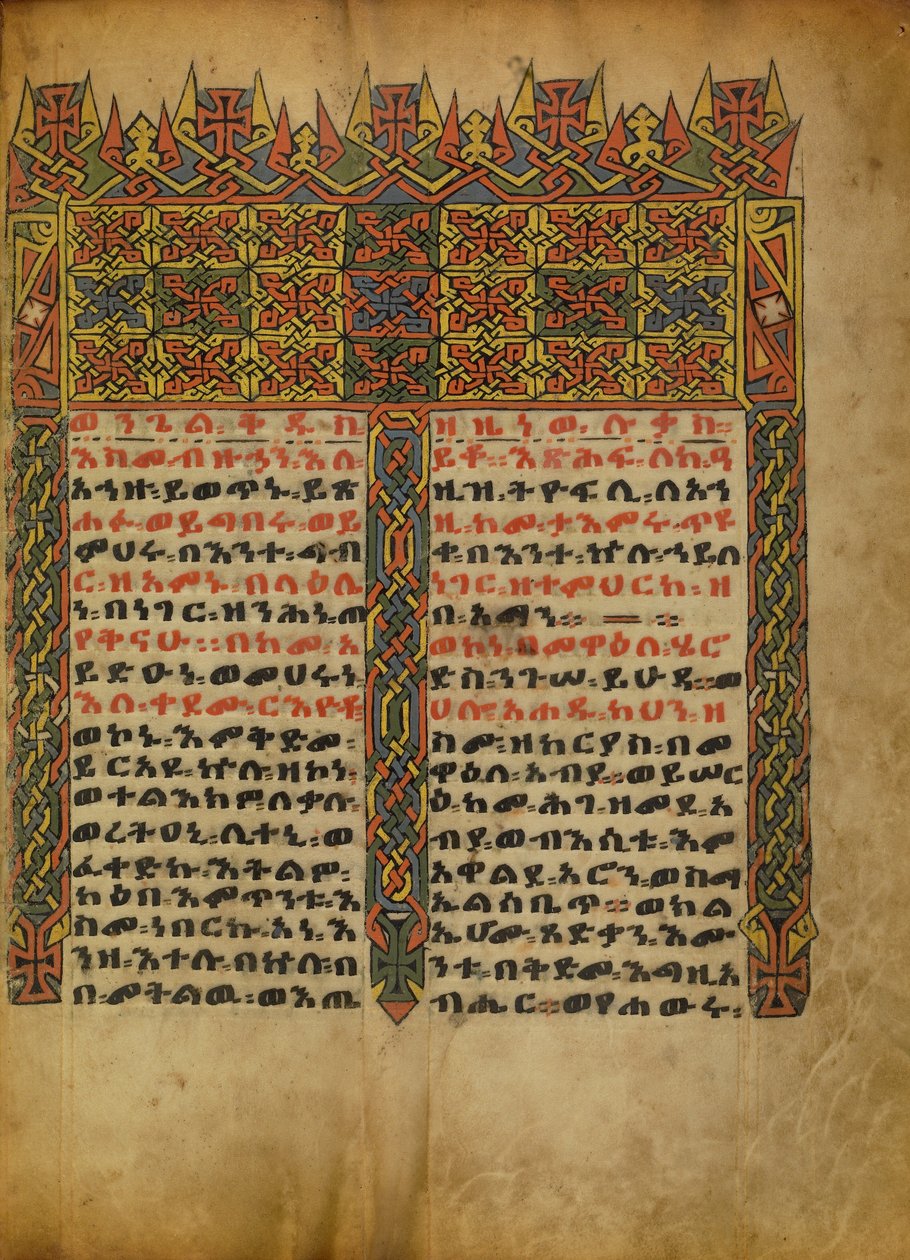 ወንጌል፡ ቅዱስ፡
እስመ፡ ብዙኃን፡ እለ፡
አኀዙ፡ ይወጥኑ፡ ይጽ
ሐፉ፡ ወይግበሩ፡ ወይ
ምህሩ፡ በእንተ፡ ግብ
ር፡ ዘአምኑ፡ በላዕሌ
ነ፡ በነገር፡ ዘንሕነ፡ ጠ
የቅናሁ። በከመ፡ አ
ይድዑነ፡ ወመሀሩነ
እለ፡ ቀደሙ፡ ርእዮቶ
ወኮኑ፡ እምቅድመ፡
ይርአዩ፡ ኵሉ፡ ዘኮነ፡
ወተልእክዎ፡ ለቃሉ፡
ወረትዐኒ፡ ሊተኒ፡ ወ
ፈቀድኩ፡ እትልዎ፡
ስዕበ፡ እምጥንቱ፡ እ
ስመ፡ ነበርኩ፡ አነ፡ እ
ንዘ፡ እተሉ፡ በኵሉ፡ በ
በ፡ መትልዉ፡ ወእጤ
ዘዜነወ፡ ሉቃስ።
ይቆ። እጽሕፍ፡ ለከ፡ ዓ
ዚዝ፡ ትዮፍሊ፡ ለአን
ዚ፡ ከመ፡ ታእምሮ፡ ጥዩ
ቀ፡ በእንተ፡ ኵሉ፡ ኀይለ
ነገር፡ ዘተምህርከ፡ ዘ
በ፡ አማን።
ወኮነ፡ በመዋዕለ፡ ሄሮ
ድስ፡ ንጉሠ፡ ይሁዳ፡ ወ
ሀሎ፡ አሐዱ፡ ካህን፡ ዘ
ስሙ፡ ዘካርያስ፡ በመ
ዋዕለ፡ አብያ፡ ወይሠር
ዕ፡ ከመ፡ ሕገ፡ ዘመደ፡ አ
ብያ፡ ወብእሲቱ፡ እም
አዋልደ፡ አሮን፡ ወስማ
ኤልሳቤጥ። ወክል
ኤሆሙ፡ ጻድቃን፡ እሙ
ንቱ፡ በቅድመ፡ እግዚአ
ብሔር። ወየሐውሩ፡